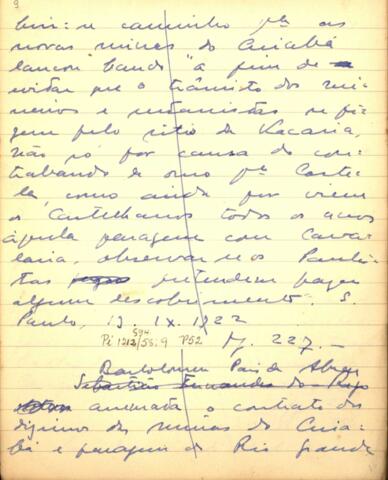 9
brir: se caminho pª as
novas minas do Cuiabá
lançou "bando" a fim de
evitar que o trânsito dos mi-
neiros e sertanistas se fi-
zem pelo sitio da Vacaria,
não só por causa do con-
trabando de ouro pª Caste-
la, como ainda por virem
os Castelhanos todos os anos
áquela paragem com Caval-
laria, observar se os Paulis-
tas pretendem fazer
algum descobrimento. S.
Paulo, IX. 1722
594
Pi 1212/55: 9 P52
Mj. 227. —
Bartolomeu Pais de Abreu
Sebastião Fernandes do Rego
arremata o contrato dos
dizimos das minas do Cuia-
bá e paragem do Rio Grande